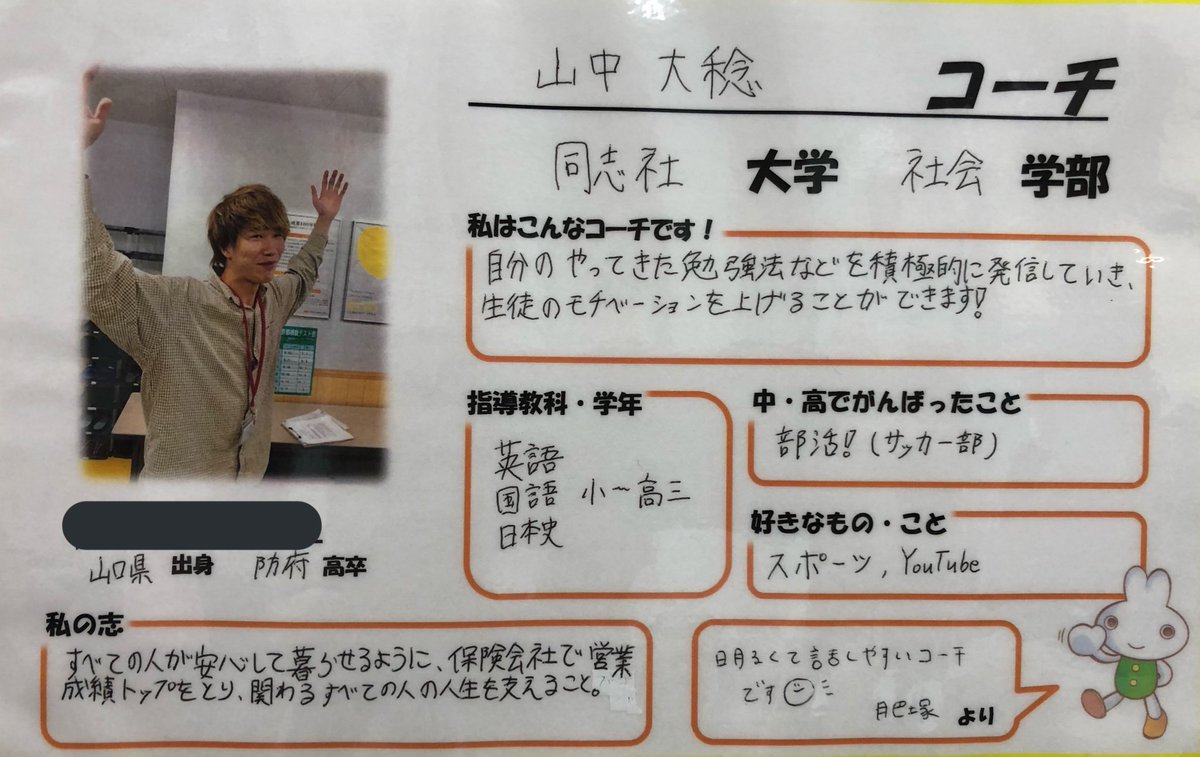 山中 大稔 コーチ
同志社 大学 社会 学部
私はこんなコーチです！
自分のやってきた勉強法などを積極的に発信していき、
生徒のモチベーションを上げることができます!
指導教科・学年
英語
国語 小〜高三
日本史
中・高でがんばったこと
部活!(サッカー部)
好きなもの・こと
スポーツ, YouTube
山口県 出身 防府 高卒
私の志
すべての人が安心して暮らせるように、保険会社で営業
成績トップをとり、関わるすべての人の人生を支えること。
明るくて話しやすいコーチ
です
肥塚 より